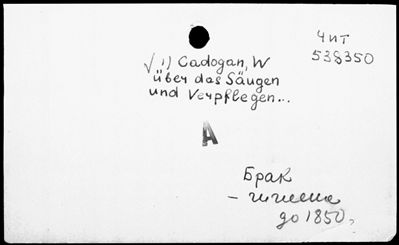 Чит
538350
√ 1) Cadogan, W
über das Säugen
und Verpflegen...
A
Брак
- гигиена
до 1850г.